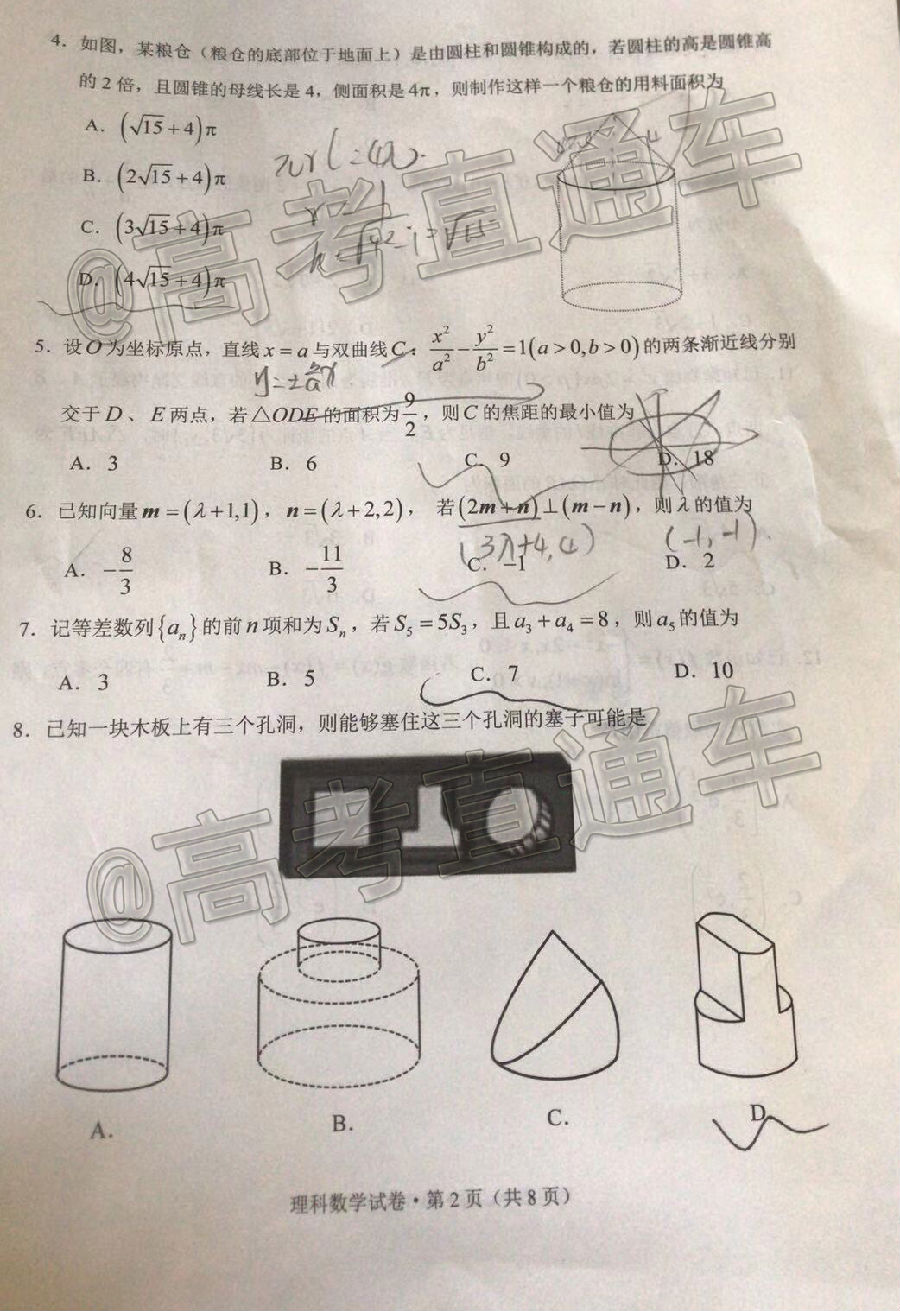 4．如图，某粮仓（粮仓的底部位于地面上）是由圆柱和圆锥构成的，若圆柱的高是圆锥高
的 2 倍，且圆锥的母线长是 4，侧面积是 4π，则制作这样一个粮仓的用料面积为
A．(√15+4)π
B．(2√15+4)π
πrl=4π
C．(3√15+4)π
D．(4√15+4)π
5．设O为坐标原点，直线x=a与双曲线C：x²/a²−y²/b²=1(a>0,b>0)的两条渐近线分别
交于 D 、 E 两点，若△ODE的面积为9/2，则 C 的焦距的最小值为
A．3 B．6 C．9 D．18
6．已知向量m=(λ+1,1)，n=(λ+2,2)，若(2m+n)⊥(m−n)，则λ的值为
(3λ+4,4) (-1,-1)
A．−8/3 B．−11/3 C．−1 D．2
7．记等差数列{aₙ}的前n项和为Sₙ，若S₅=5S₃，且a₃+a₄=8，则a₅的值为
A．3 B．5 C．7 D．10
8．已知一块木板上有三个孔洞，则能够塞住这三个孔洞的塞子可能是
A． B． C． D
理科数学试卷·第 2 页（共 8 页）
@高考直通车
@高考直通车